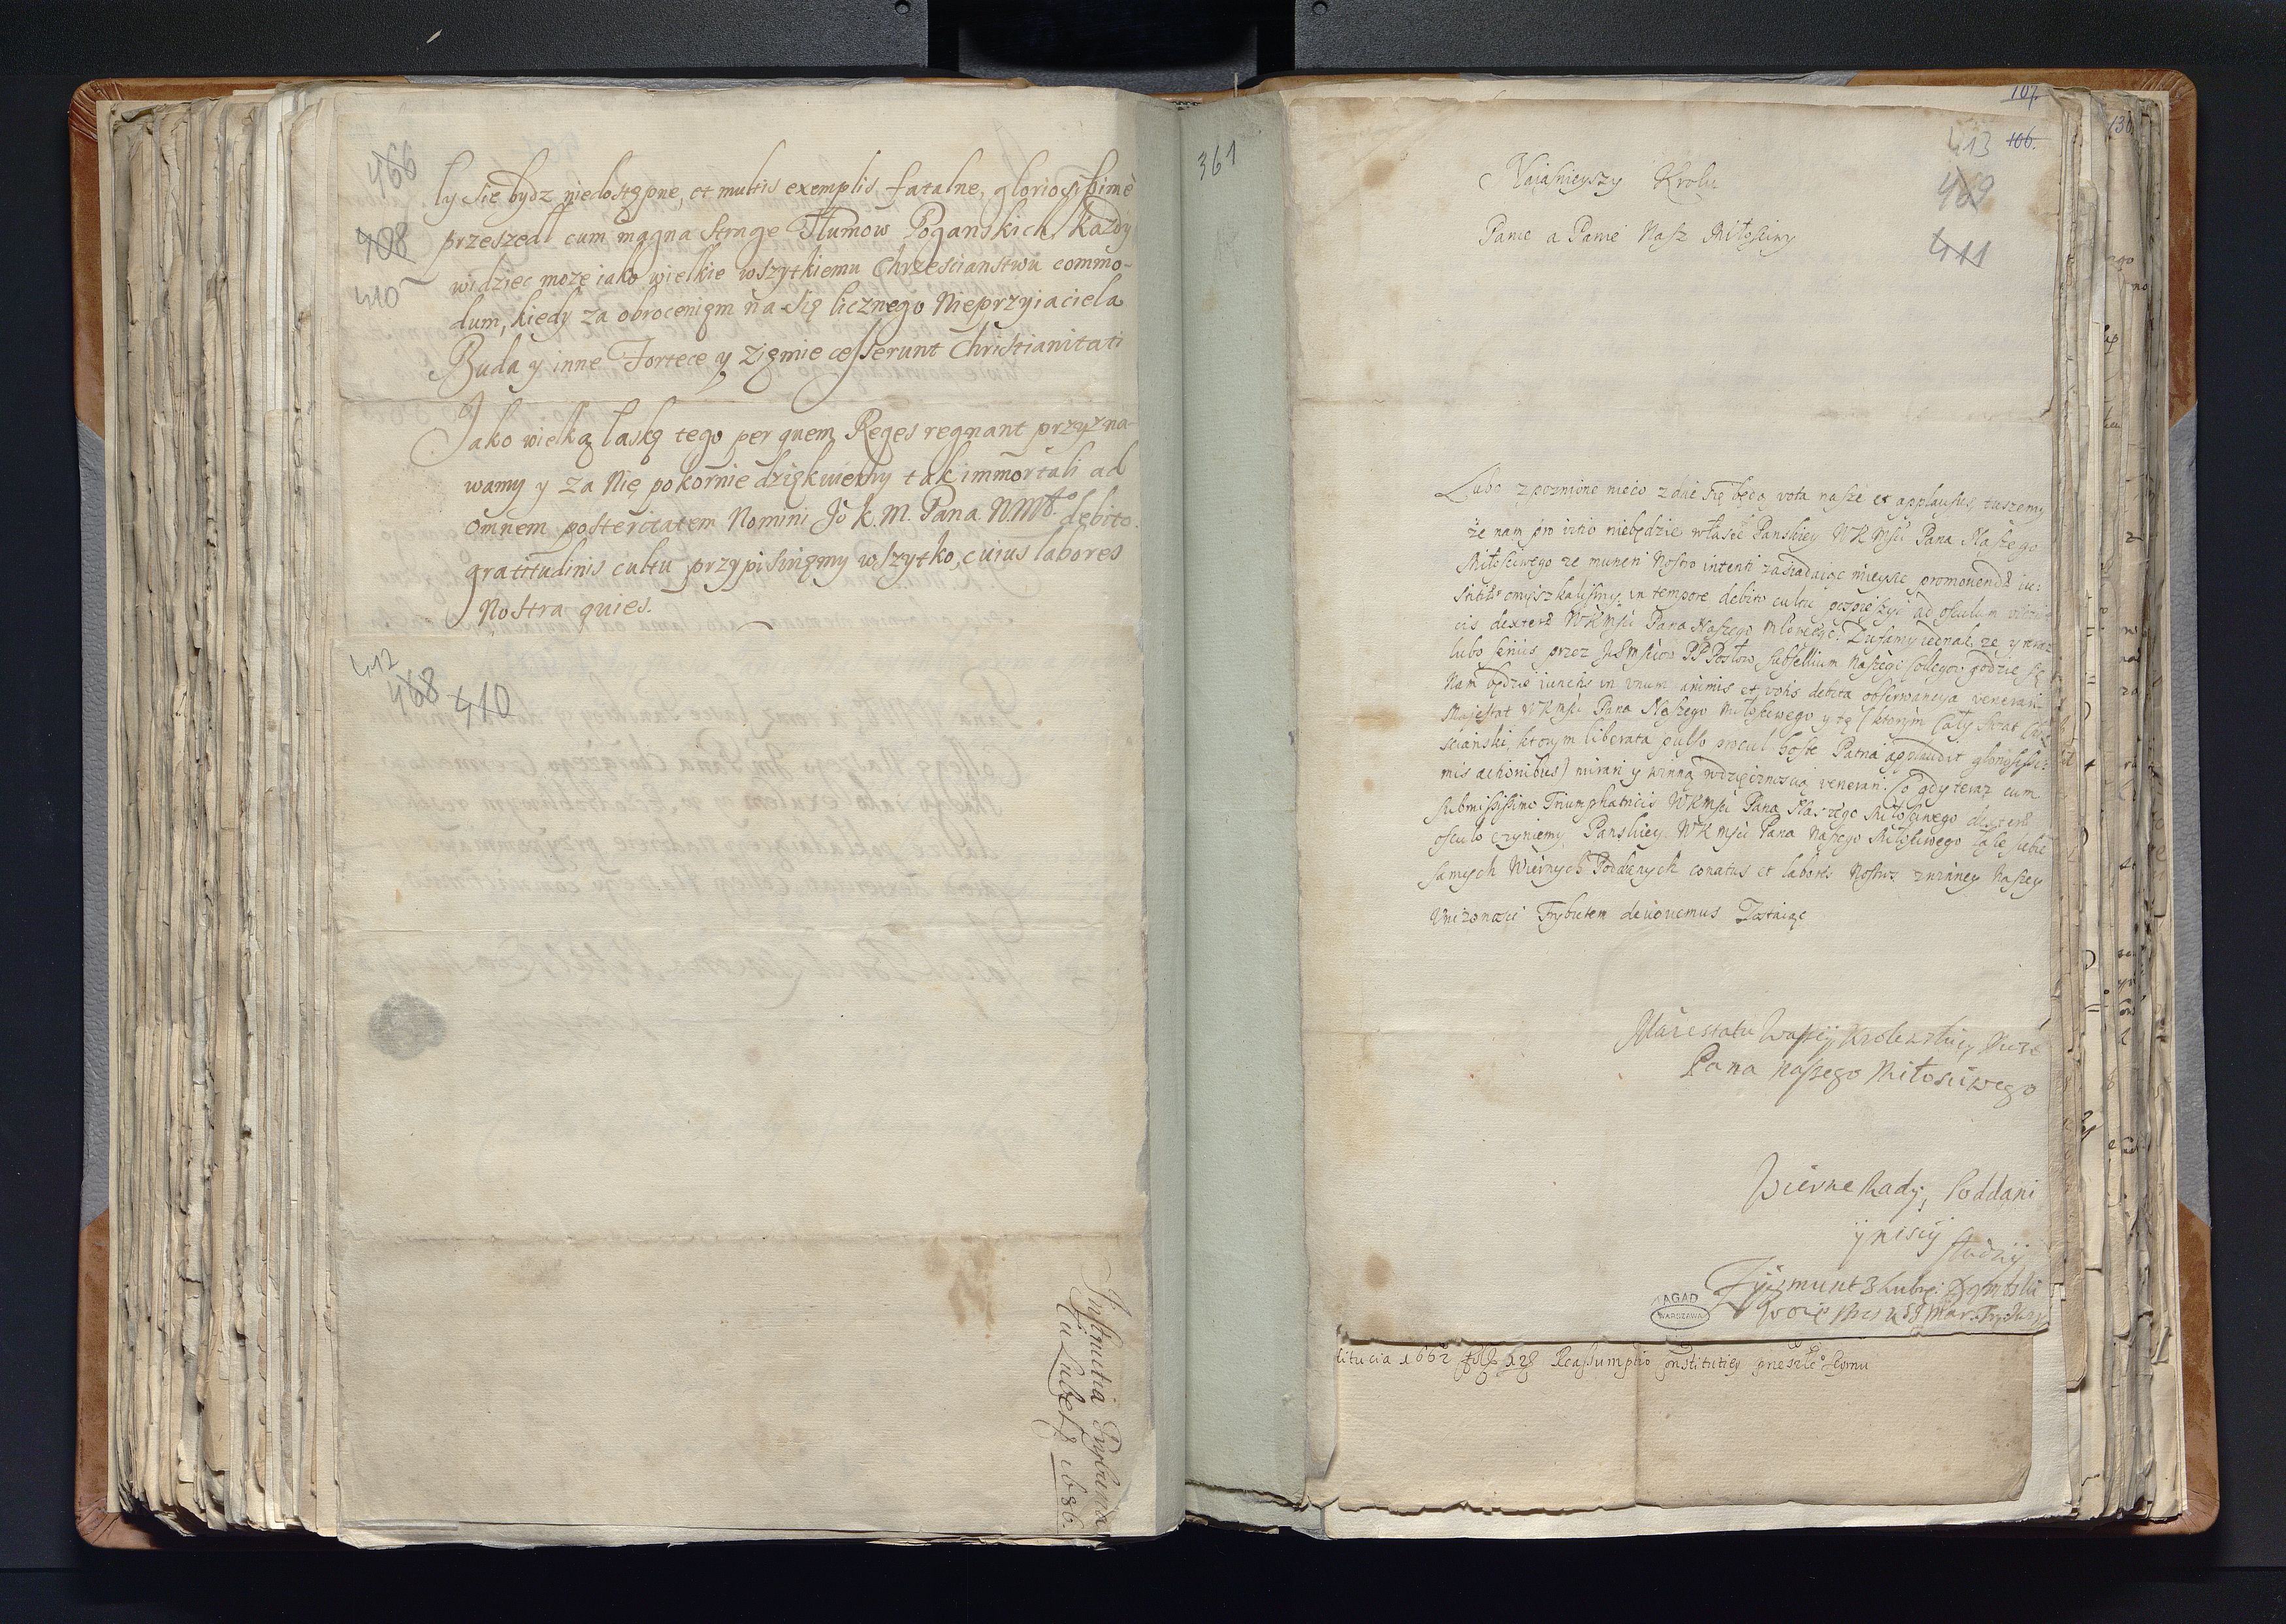 466
408
410
ly się bydz niedostępne, et multis exemplis fatalne, gloriosissimè
przeszedł cum magna strage Tłumow Poganskich, każdy
widziec może iako wielkie wszytkiemu Chrzescianstwu commo-
dum, kiedy za obroceniem na się licznego Nieprzyiaciela
Buda y inne Fortece y ziemie cesserunt Christianitati
Jako wielką łaskę tego per quem Reges regnant przyzna-
wamy y za Nię pokornie dziękuiemy tak immortali ad
omnem posteritatem Nomini Jo K. M. Pana N. Mo. debito
gratitudinis cultu przypisuiemy wszytko, cuius labores
Nostra quies.
412
468 410
Instructia Trybunału
Lubel 1686.
361
107.
413 106.
469
411
Naiasnieyszy Krolu
Panie a Panie Nasz Miłosciwy
Lubo zpoznione nieco zdać się będą vota nasze et applausus, tuszemy
że nam pro vitio niebędzie w łasce Panskiey WKMsci Pana Naszego
Miłosciwego ze muneri Nostro intenti zasiadaiąc mieysce promovendae ius-
titiae omieszkalismy in tempore debito cultu pospieszyć ad osculum
dexterae WKMsci Pana Naszego Młoscwego. Dufamy iednak, ze y teraz
lubo serius przez Posłow, subsellium naszego Collegow godzić się
Nam będzie iunctis in unum animis et votis debita obserwancya venerari
Maiestat WKMsci Pana Naszego Miłosciwego y tę (ktorym cały swiat Chrze
scianski, ktorym liberata pulso procul hoste Patria applaudit gloriosissi-
mis actionibus) mirari y winną wdzięcznoscią venerari. Co gdy teraz cum
submississimo Triumphatricis WKMsci Pana Naszego Miłosciwego dexterae
osculo czyniemy, Panskiey WKMsci Pana Naszego Miłosciwego łasce siebie
samych Wiernych Poddanych conatus et labores Nostros z winney Naszey
Unizonosci Trybutem devovemus Zostaiąc
Maiestatu Waszey Krolewskiey Mosci
Pana Naszego Miłosciwego
Wierne Rady, Poddani
y niscy
studzy
Zygmunt
AGAD
WARSZAWA
titucia 1662 Reassumptio constitutiey Seymu
130